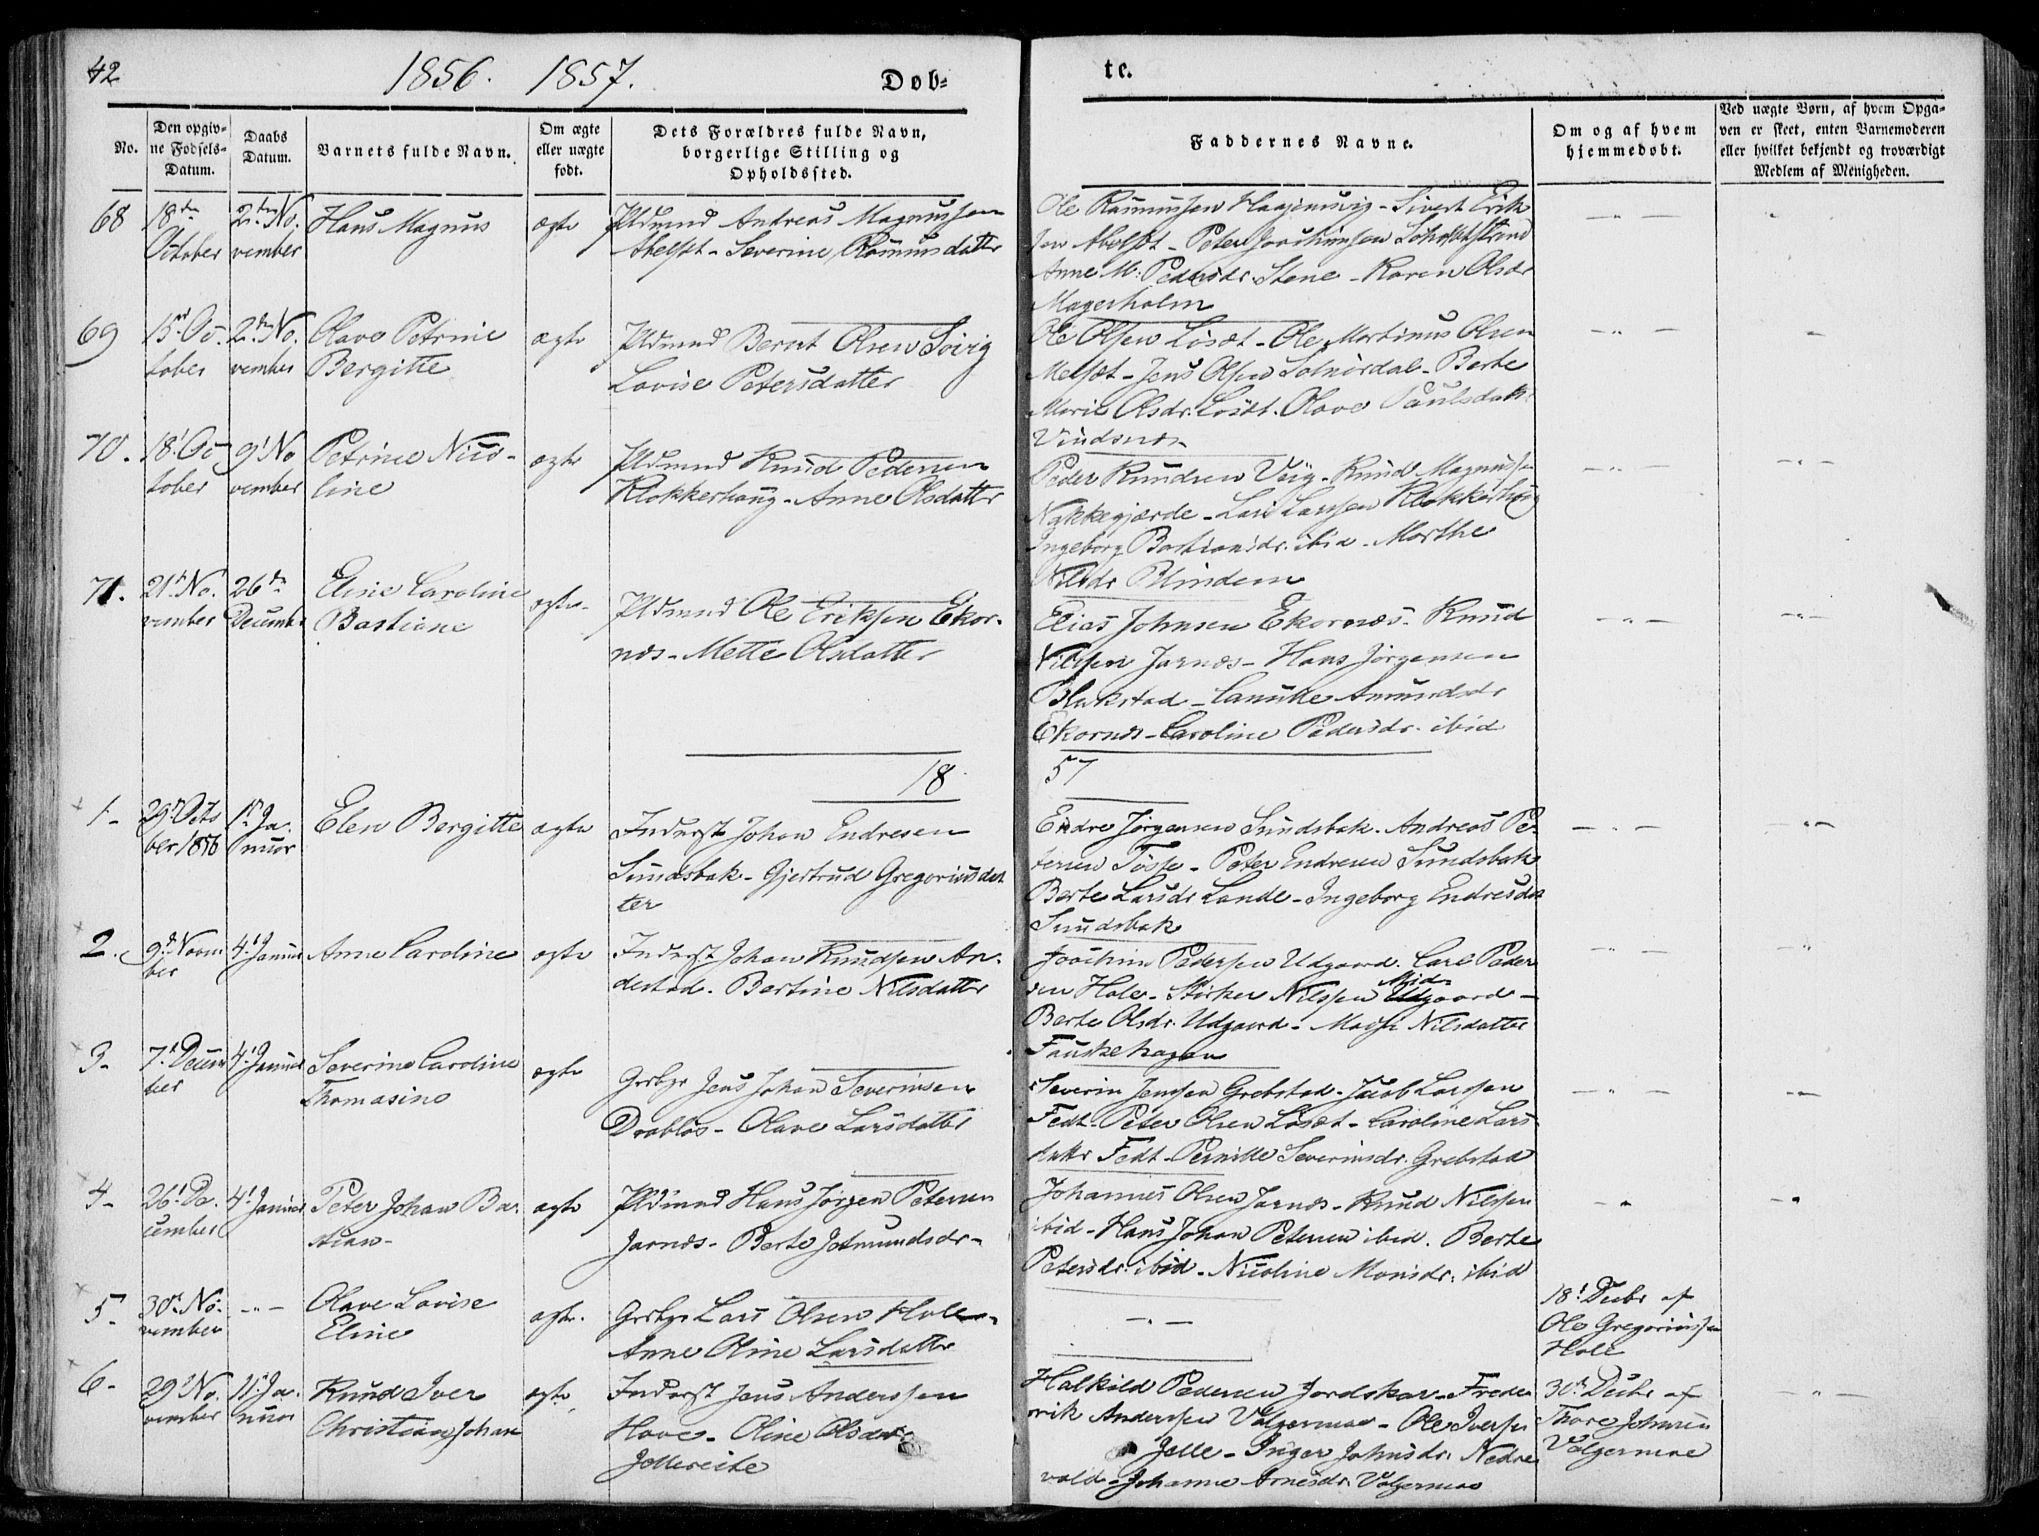 42
1856. 1857.
Døb-
te.
No.
Den opgiv-
ne Fødsels-
Datum.
Daabs
Datum.
Barnets fulde Navn.
Om ægte
eller uægte
født.
Dets Forældres fulde Navn,
borgerlige Stilling og
Opholdssted.
Faddernes Navne.
Om og af hvem
hjemmedøbt.
Ved uægte Børn, af hvem Opga-
ven er skeet, enten Barnemoderen
eller hvilket bekjendt og troværdigt
Medlem af Menigheden.
68
18de
October
2den No-
vember
Hans Magnus
ægte
Pldmnd Andreas Magnussen
Abelsæt - Severine Rasmusdatter
Ole Rasmussen - Sivert Erik
sen Abelsæt - Peter Joachimsen
Anne M: Pedersdr. Stene - Karen Olsdr
Magerholm
69
Oc-
tober
2den No.
vember
Olave Petrine
Bergitte
ægte
Pldmnd Bernt Olsen Søvig
Lovise Petersdatter
Ole Olsen Løsæt - Ole Martinus Olsen
Melsæt - Jens Olsen Solnørdal - Berte
Marie Olsdr. Løsæt. Olave Paulsdatr
Vindsnæs
70.
18' Oc
tober
9' No
vember
Petrine Nico-
line
ægte
Pldmnd Knud Pedersen
Klokkerhaug - Anne Olsdatter
Peder Knudsen Veig - Knud Magnuss
Nakkegjærde - Lars Larssen Klokkerhaug
Ingeborg Bastiansdr. ibid - Marthe
Nilsdr Blindem
71.
21' No.
vember
26de
Decembr
Eline Caroline
Bastiane
ægte
Pldmnd Ole Eriksen Ekor-
næs - Mette Olsdatter
Elias Johnsen Ekornæs. Knud
Nilssen Jarnæs - Hans Jørgensen
Blakstad - Amundsdr
Ekornæs - Caroline Pedersdr. ibid
18
57
1-
29' Octo
ber 1856
1st Ja.
nuar
Elen Bergitte
ægte
Inderst Johan Endresen
Sundsbak - Gjertrud Gregoriusdat
ter
Endre Jørgensen Sundsbak. Andreas Pe-
tersen Tøsse - Peter Endresen Sundsbak
Berte Larsdr Lande - Ingeborg Endresdr
Sundsbak
2.
9' Novm
ber
4' Januar
Anne Caroline
ægte
Inderst Johan Knudsen An-
destad. Bertine Nilsdatter
Joachim Pedersen Udgaard. Carl Peder
sen Hole - Størker Nilssen Mid-
Udgaard -
Berte Olsdr. Udgaard - Nilsdatter
Fauskehagen
3-
7' Decem
ber
4' Januar
Severine Caroline
Thomasine
ægte
Grbgr Jens Johan Severinsen
Drabløs - Olave Larsdatter
Severin Jenssen Grebstad - Jacob Larssen
Fedt - Peter Olsen Løsæt - Caroline Lars-
datter Fedt - Pernille Severinsdr. Grebstad
4-
26' De-
cember
4' Januar
Peter Johan Ba-
stian-
ægte
Pldmnd Hans Jørgen Petersen
Jarnæs - Berte Jetmundsdr-
Johannes Olsen Jarnæs - Knud Nilssen
ibid - Hans Johan Petersen ibid. Berte
Petersdr. ibid - Nicoline Monsdr. ibid
5-
30' No-
vember
Olave Lovise
Eline
ægte.
Grbgr Lars Olsen Hole-
Anne Oline Larsdatter
18' Decbr af
Ole Gregoriussen
Hole
6-
29' No.
vember
11' Ja-
nuar
Knud Iver
Christian Johan
ægte
Inderst Jens Anderssen
Hove - Oline Olsdatr
Jellereite
Halkild Pedersen Jordskar - Frede
rik Anderssen Valgermoe - Ole Iversen
Jelle - Inger Johnsdr. Nedre
vold - Johanne Arnesdr. Valgermoe
30' Decbr af
Thore Johnsen
Valgermoe